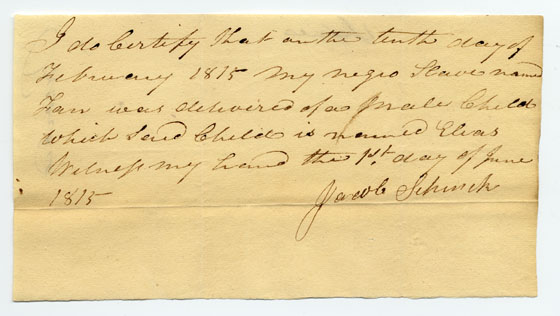 I do Certify that on the tenth day of
February 1815 my negro Slave named
Fan was delivered of a Male Child
which said Child is named Elias
Witness my hand the 1st. day of June
1815
Jacob Schenck